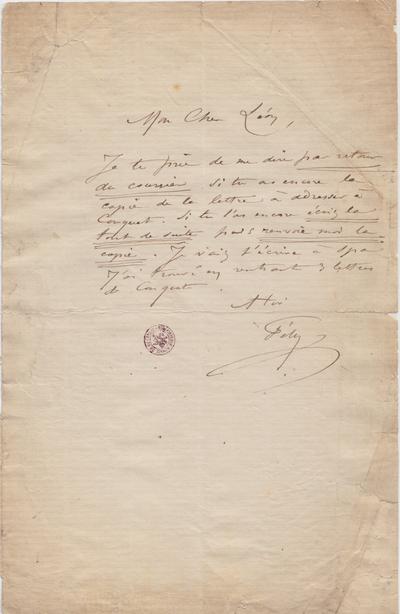 Mon Cher Léon,
Je te prie de me dire par retour
du courrier si tu as encore la
copie de la lettre à adresser à
Conquet. Si tu l'as encore écris la
tout de suite puis renvoie moi la
copie. Je vais t'écrire à Spa
J'ai trouvé en rentrant 3 lettres
de Conquet.
A toi